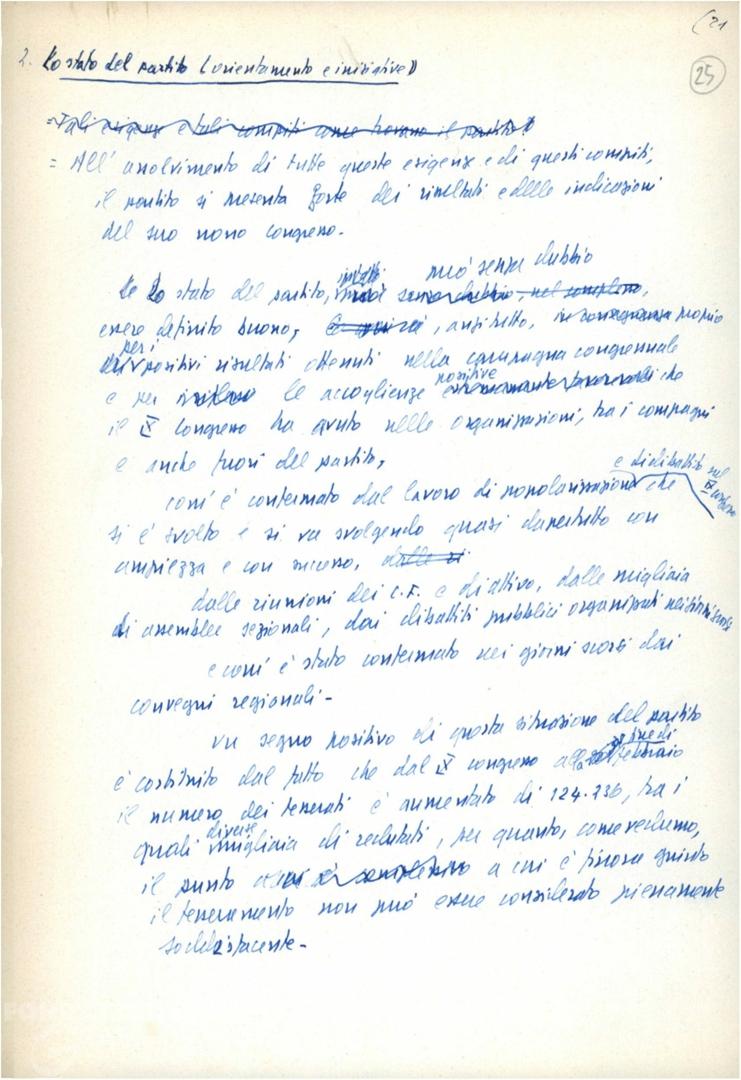 (21
25
2. Lo stato del partito (orientamento e iniziative)
= Tali esigenze e tali compiti come trovano il partito?
= All'assolvimento di tutte queste esigenze e di questi compiti,
il partito si presenta forte dei risultati e delle indicazioni
del suo nono congresso.-
infatti può senza dubbio
Se Lo stato del partito, senza dubbio, nel complesso,
essere definito buono, anzitutto, in conseguenza proprio
per i
positivi risultati ottenuti nella campagna congressuale
positive
e per le accoglienze estremamente favorevoli che
il IX congresso ha avuto nelle organizzazioni, tra i compagni
e anche fuori del partito,
e di dibattito sul
IX congresso
com'è confermato dal lavoro di popolarizzazione che
si è svolto e si va svolgendo quasi dappertutto con
ampiezza e con successo, dalle
dalle riunioni dei C.F. e di attivo, dalle migliaia
di assemblee sezionali, dai dibattiti pubblici organizzati
e com'è stato confermato nei giorni scorsi dai
convegni regionali.-
Un segno positivo di questa situazione del partito
fine di
è costituito dal fatto che dal IX congresso alla febbraio
il numero dei tesserati è aumentato di 124.236, tra i
diverse
quali migliaia di reclutati, per quanto, come vedremo,
il punto complessivo a cui è finora giunto
il tesseramento non può essere considerato pienamente
soddisfacente.-